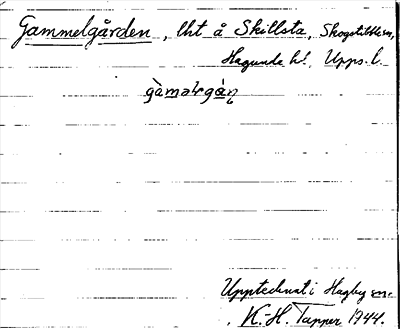 Gammelgården, lht å Skillsta, Skogstibble sn,
Hagunda hd, Upps. l.
gàməlgán
Upptecknat i Hagby sn.
K.-H. Tapper 1944.